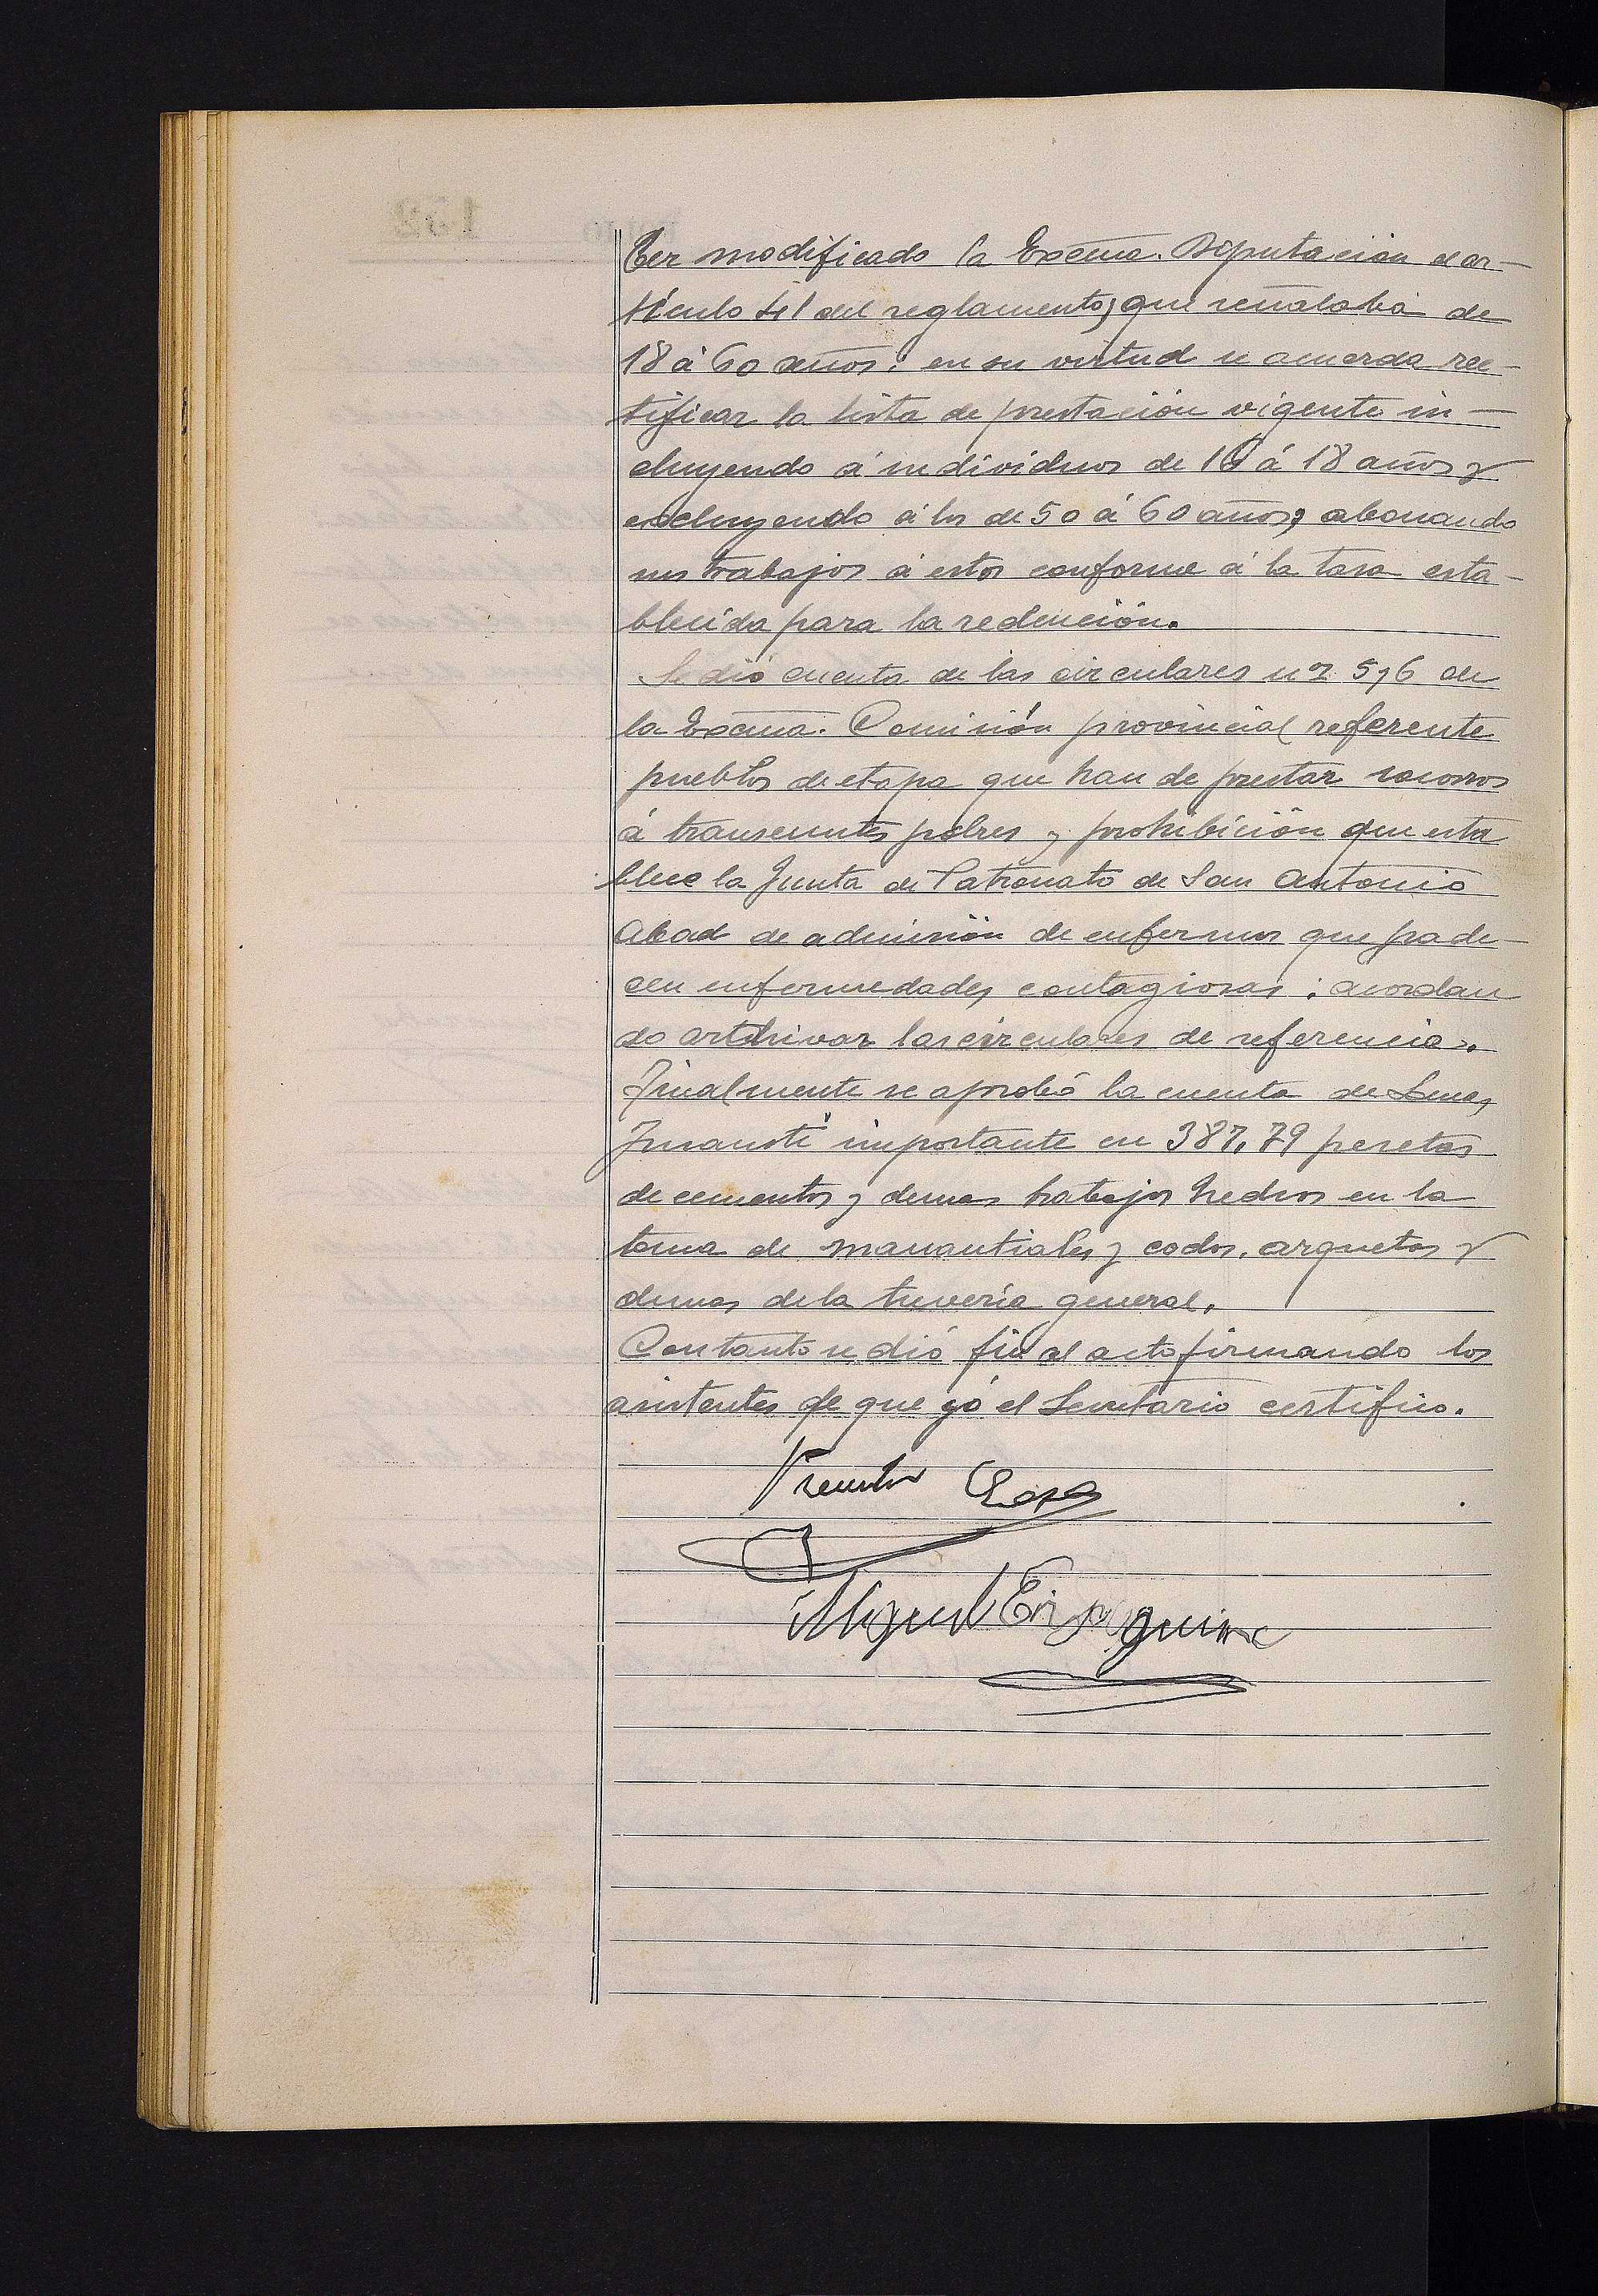 ber modificado la Excma. Diputación el ar-
tículo 41 del reglamento, que señalaba de
18 á 60 años: en su virtud se acuerda rec-
tificar la lista de prestación vigente in-
cluyendo á individuos de 16 á 18 años y
excluyendo á los de 50 á 60 años, abonando
sus trabajos á estos conforme á la tasa esta-
blecida para la redención.
Se dió cuenta de las circulares nos 5 y 6 de
la Excma. Comisión provincial referente
pueblos de etapa que han de prestar socorros
á transeuntes pobres y prohibición que esta
blece la Junta de Patronato de San Antonio
Abad de admisión de enfermos que pade-
cen enfermedades contagiosas: acordan
do archivar las circulares de referencia.
Finalmente se aprobó la cuenta de
importante en 387,79 pesetas
de cementos y demas trabajos hechos en la
toma de manantiales y codos, arquetas y
demas de la tuvería general.
Con tanto se dió fin al acto firmando los
asistentes de que yó el Secretario certifico.
Miguel